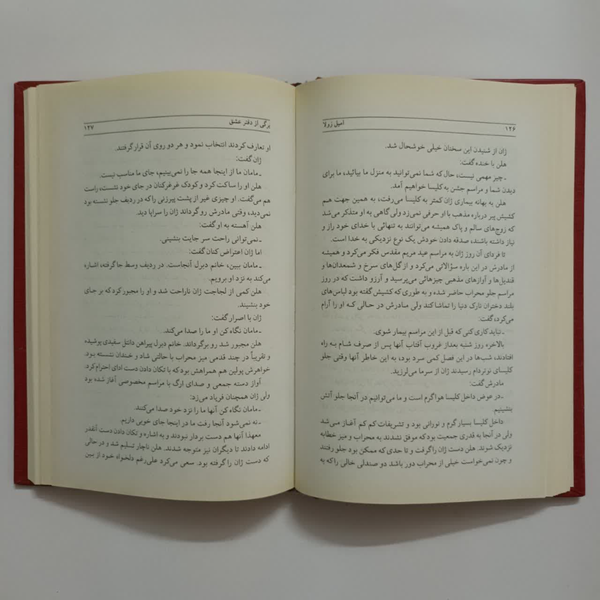 ۱۲۶ امیل زولا
ژان از شنیدن این سخنان خیلی خوشحال شد.
هلن با خنده گفت:
ـ چیز مهمی نیست، حال که شما نمی‌توانید به منزل ما بیائید، ما برای
دیدن شما و مراسم جشن به کلیسا خواهیم آمد.
هلن به بهانه بیماری ژان کمتر به کلیسا می‌رفت، به همین جهت هم
کشیش پیر درباره مذهب با او حرفی نمی‌زد ولی گاهی به او متذکر می‌شد
که زوج‌های سالم و پاک همیشه می‌توانند به تنهائی با خدای خود راز و
نیاز داشته باشند، صدقه دادن خودش یک نوع نزدیکی به خدا است.
تا فردای آن روز ژان به مراسم عید مریم مقدس فکر می‌کرد و همیشه
از مادرش در این باره سؤالاتی می‌کرد و از گل‌های سرخ و شمعدان‌ها و
قندیل‌ها و آوازهای مذهبی چیزهائی می‌پرسید و آرزو داشت که در روز
مراسم جلو محراب حاضر شده و به طوری که کشیش گفته بود لباس‌های
بلند دختران تارک دنیا را تماشا کند ولی مادرش در حالی که او را آرام
می‌کرد، گفت:
ـ نباید کاری کنی که قبل از این مراسم بیمار شوی.
بالاخره روز شنبه بعداز غروب آفتاب آنها پس از صرف شام به راه
افتادند، شب‌ها در این فصل کمی سرد بود، به این خاطر آنها وقتی جلو
کلیسای نوتردام رسیدند ژان از سرما می‌لرزید.
مادرش گفت:
ـ در عوض داخل کلیسا هوا گرم است و ما می‌توانیم در آنجا جلو آتش
بنشینیم.
داخل کلیسا بسیار گرم و نورانی بود و تشریفات کم کم آغاز می‌شد
ولی در آنجا به قدری جمعیت بود که موفق نشدند به محراب و میز خطابه
نزدیک شوند. هلن دست ژان را گرفت و تا حدی که ممکن بود جلو رفتند
و چون نمی‌خواست خیلی از محراب دور باشند دو صندلی خالی را که به
برگی از دفتر عشق ۱۲۷
او تعارف کردند انتخاب نمود و هر دو روی آن قرار گرفتند.
ژان گفت:
ـ مامان ما از اینجا همه جا را نمی‌بینیم، جای ما مناسب نیست.
هلن او را ساکت کرد و کودک غرغرکنان در جای خود نشست، راست
هم می‌گفت، او چیزی غیر از پشت پیرزنی را که در ردیف جلو نشسته بود
نمی‌دید، وقتی مادرش رو گرداند ژان را سراپا دید.
هلن آهسته به او گفت:
ـ نمی‌توانی راحت سر جایت بنشینی.
اما ژان اعتراض کنان گفت:
ـ مامان ببین، خانم دبرل آنجاست. در ردیف وسط جا گرفته، اشاره
می‌کند نزد او برویم.
هلن کمی از لجاجت ژان ناراحت شد و او را مجبور کرد که بر جای
خود بنشیند.
ژان با اصرار گفت:
ـ مامان نگاه کن او ما را صدا می‌کند.
هلن مجبور شد رو برگرداند. خانم دبرل پیراهن دانتل سفیدی پوشیده
و تقریباً در چند قدمی میز محراب با حالتی شاد و خندان نشسته بود.
خواهرش پولین هم همراهش بود که با تکان دادن دست ادای احترام کرد؛
آواز دسته جمعی و صدای ارگ با مراسم مخصوصی آغاز شده بود
ولی ژان همچنان فریاد می‌زد:
ـ مامان نگاه کن آنها ما را نزد خود صدا می‌کنند.
ـ نه نمی‌شود آنجا رفت ما در اینجا جای خوبی داریم.
معهذا آنها هم دست بردار نبودند و به اشاره و تکان دادن دست آنقدر
ادامه دادند تا دیگران نیز متوجه شدند. هلن ناچار تسلیم شد و در حالی
که دست ژان را گرفته بود. سعی می‌کرد علی‌رغم دلخواه خود از بین